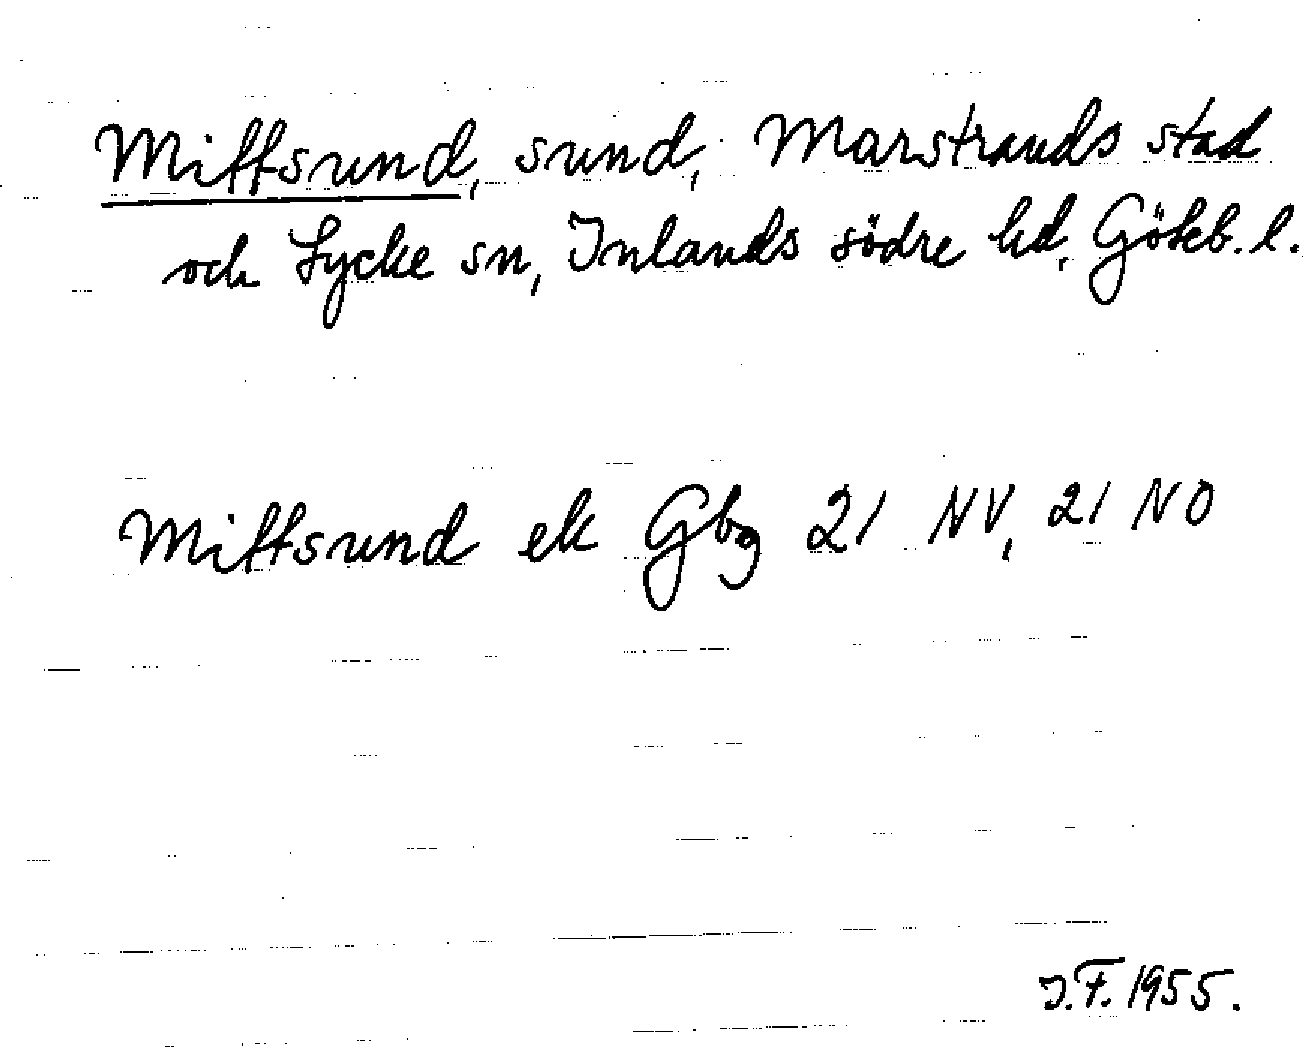 Mittsund, sund, Marstrands stad
och Lycke sn, Inlands södre hd, Göteb. l.
Mittsund ek Gbg 21 NV, 21 NO
J.F. 1955.